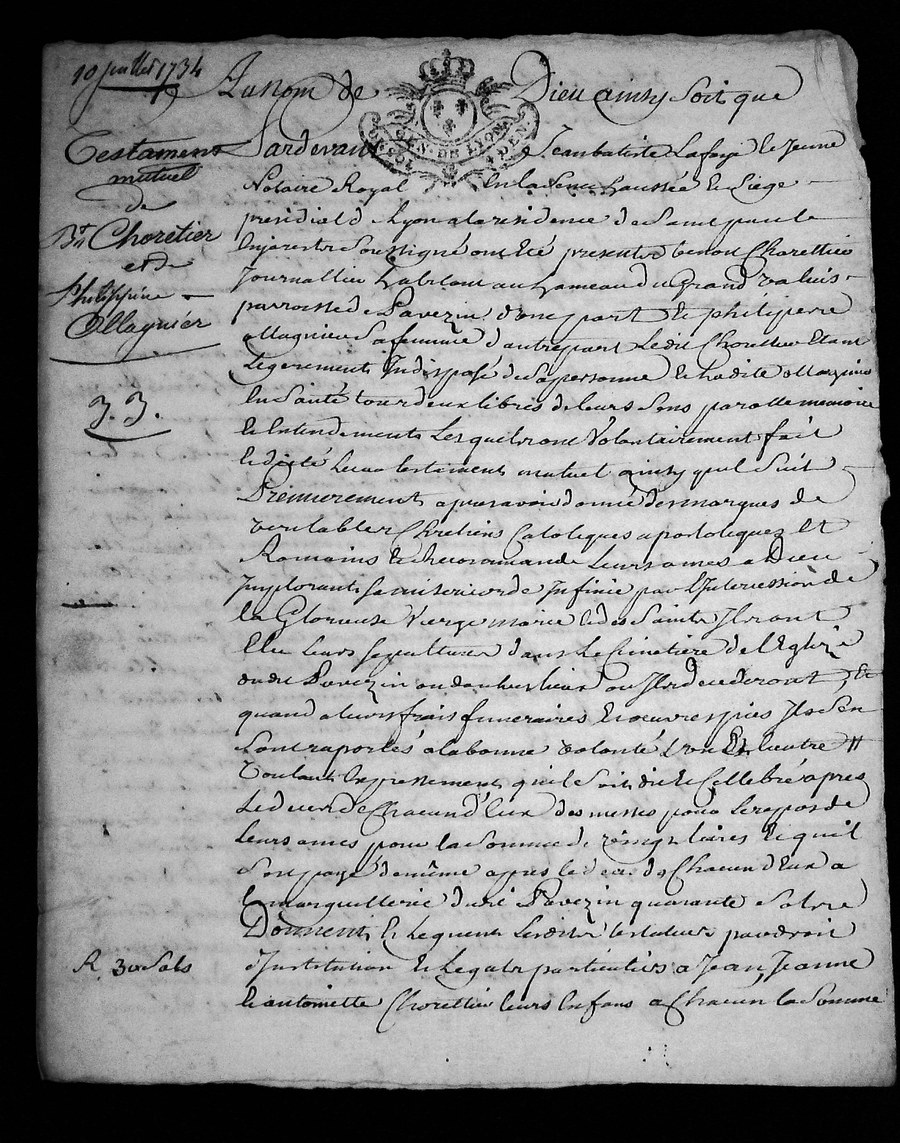 10 juillet 1734
Au nom de Dieu ainsy soit que
Testament
mutuel
de
Bt Chorétier
et de
Philippine
Magnier
3. 3.
GEN. DE LYON
Pardevant Jean batiste Lafaye le Jeune
Notaire Royal En la Senechaussée et Siege
presidial de Lyon a la residence de Saint paul
En jarest Soussigné ont été presents benoit Chorettier
Journallier habitant au hameau du Grand
parroisse de Pavezin d'une part et philipierre
Magnier Sa femme d'autre part Ledit Chorettier Etant
Legerement Indisposé de Sa personne et ladite Magnier
En Santé tous deux libres de leurs Sens parolle memoire
et Entendement Lesquels ont Volontairement fait
et dicté Leur testament mutuel ainsy quil Suit
Premierement apres avoir donné des marques de
veritables Chretiens Catoliques apostoliques Et
Romains et recommandé Leurs ames a Dieu
Implorant Sa misericorde Infinie par l'Intercession de
la Glorieuse Vierge marie et des Saints Ils ont
Elu leurs sepultures dans Le Cimetiere de l'Eglize
dudit Pavezin ou dautres lieux ou Ils decederont, Et
quand a leurs frais funeraires Et oeuvres pies Ils Sen
Sont raportés a la bonne volonté L'un Et lautre
Voulant Expressement quil Soit dit et Cellebré apres
Le deces de Chacun d'Eux des messes pour Le repos de
Leurs ames pour la Somme de vingt livres Et quil
Soit payé de même apres le deces de Chacun d'Eux a
la marguillerie dudit Pavezin quarante Sols
Donnent Et Leguent Lesdits testateurs par droit
d'Institution et Legats particuliers a Jean, Jeanne
et antoinette Chorettier leurs Enfans a Chacun la Somme
R 30 Sols